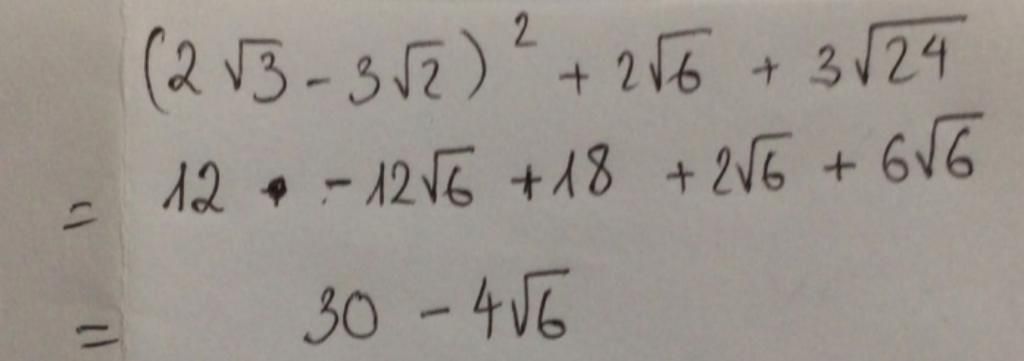 (2√3 - 3√2)² + 2√6 + 3√24
= 12 - 12√6 + 18 + 2√6 + 6√6
= 30 - 4√6